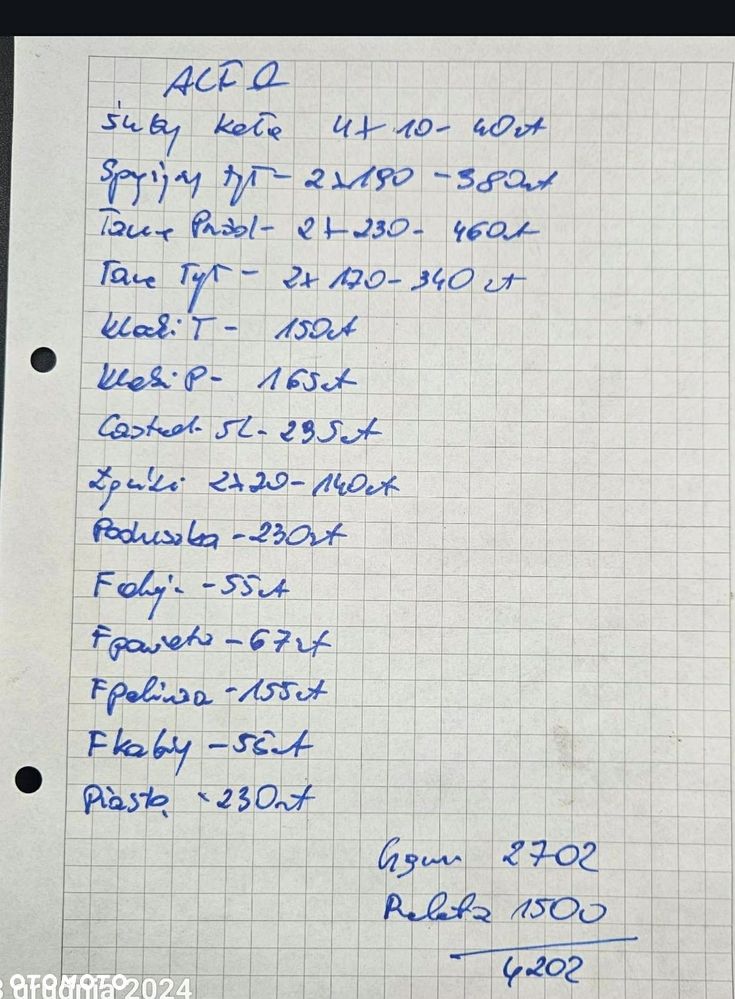 ALFA
Śruby koła 4x10- 40zł
Sprężyny tył - 2x190 - 380zł
Tarcze Przód - 2x230- 460zł
Tarcze Tył - 2x170- 340zł
Klocki T - 150zł
Klocki P- 165zł
Castrol 5L- 235zł
Łączniki 2x70- 140zł
Poduszka - 230zł
F olej - 55zł
F powietrza - 67zł
F paliwa - 155zł
F kabiny - 55zł
Piasta - 230zł
2702
Robota 1500
4202
OTOMOTO
grudnia 2024